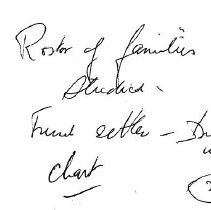 Roster of families
Studied.
Trend setter -
Chart